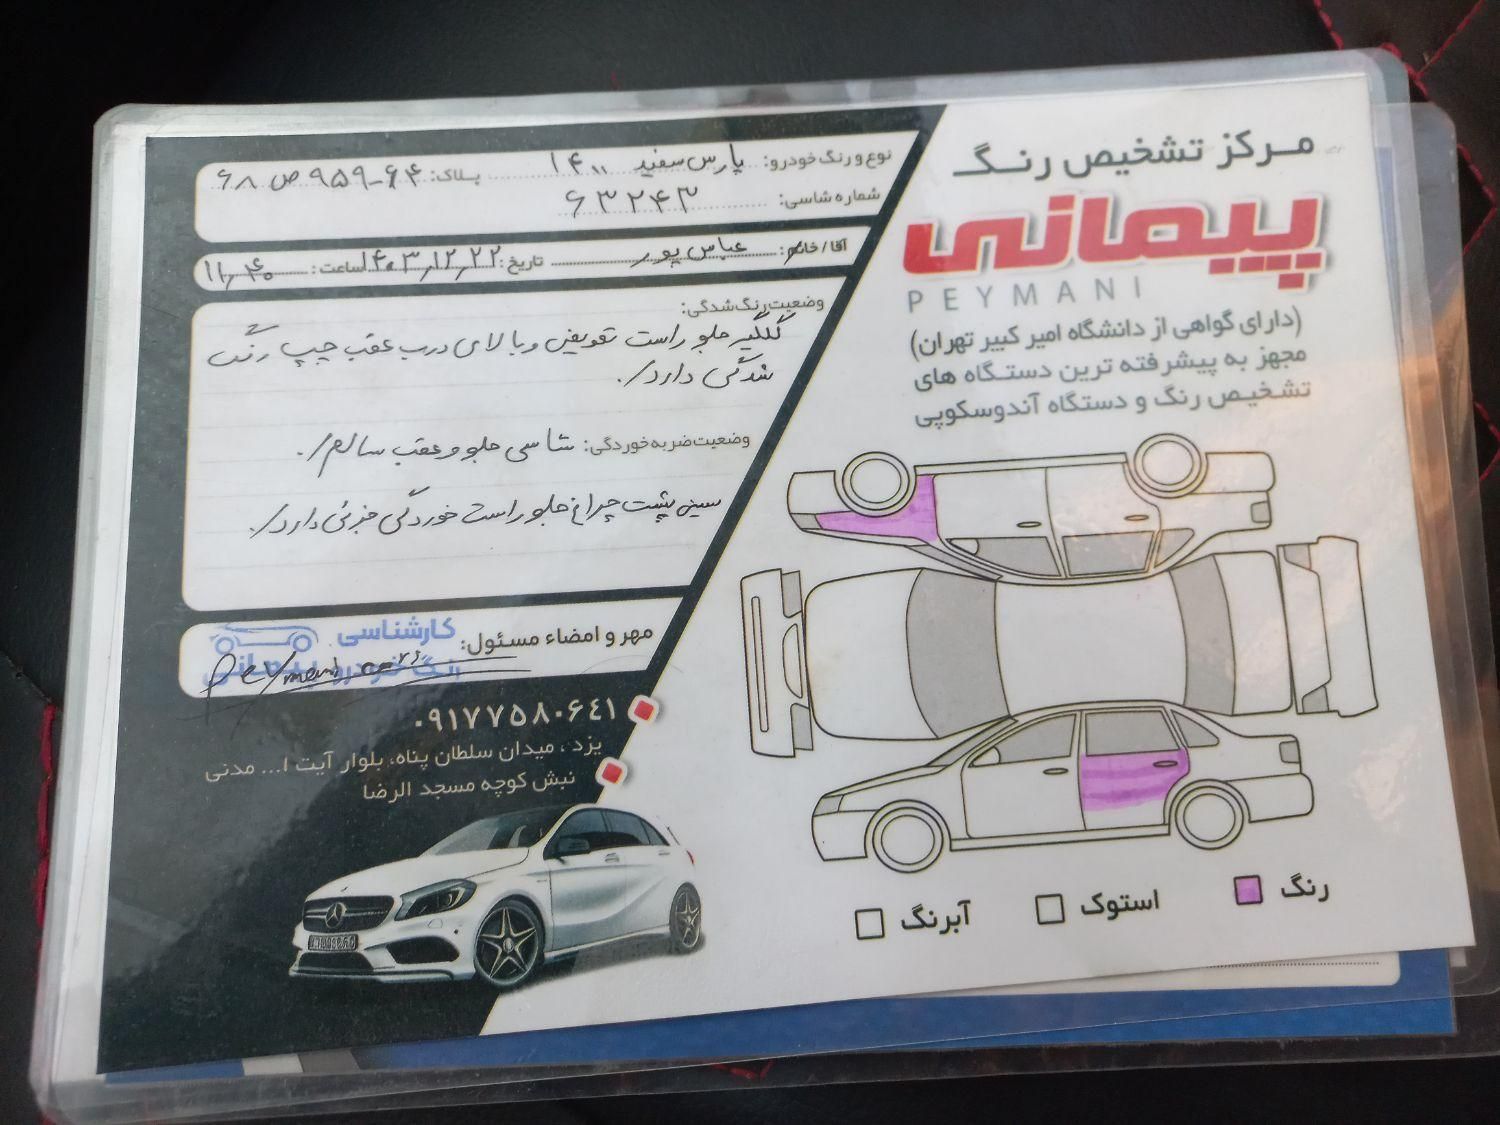 مرکز تشخیص رنگ
پیمانی
PEYMANI
(دارای گواهی از دانشگاه امیر کبیر تهران)
مجهز به پیشرفته ترین دستگاه های
تشخیص رنگ و دستگاه آندوسکوپی
نوع و رنگ خودرو: پارس سفید ۱۴۰۰ پلاک: ۶۴-۹۵۹ ص ۶۸
شماره شاسی: ۶۳۲۴۳
آقا/خانم: عباس پور تاریخ: ۱۴۰۳,۱۲,۲۲ ساعت: ۱۱,۴۰
وضعیت رنگ شدگی:
گلگیر جلو راست تعویض و بالای درب عقب چپ رنگ
شدگی دارد/.
وضعیت ضربه خوردگی: شاسی جلو و عقب سالم/.
سینی پشت چراغ جلو راست خوردگی جزئی دارد/.
مهر و امضاء مسئول:
کارشناسی
رنگ خودرو پیمانی
۰۹۱۷۷۵۸۰۶٤۱
یزد ، میدان سلطان پناه، بلوار آیت ا... مدنی
نبش کوچه مسجد الرضا
رنگ
استوک
آبرنگ